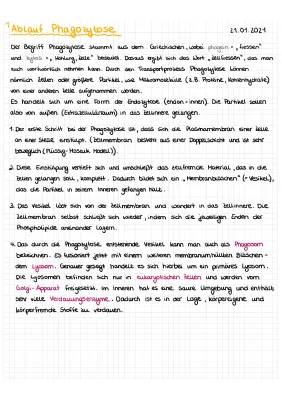 Ablauf Phagozytose 21.01.2021
Der Begriff Phagozytose stammt aus dem Griechischen, wobei phagein = "fressen"
und kytos = "Höhlung, Zelle" besteht. Daraus ergibt sich das Wort "Zellfressen", das man
auch wortwörtlich nehmen kann. Durch den Transportprozess Phagozytose können
nämlich Zellen oder größere Partikel, wie Makromoleküle (z.B. Proteine, Kohlenhydrate)
von einer anderen Zelle aufgenommen werden.
Es handelt sich um eine Form der Endozytose (endon = innen). Die Partikel sollen
also von außen (Extrazellulärraum) in das Zellinnere gelangen.
1. Der erste Schritt bei der Phagozytose ist, dass sich die Plasmamembran einer Zelle
an einer Stelle einstülpt. (Zellmembran besteht aus einer Doppelschicht und ist sehr
beweglich (Flüssig-Mosaik Modell)).
2. Diese Einstülpung vertieft sich und umschließt das zellfremde Material, das in die
Zellen gelangen soll, komplett. Dadurch bildet sich ein "Membranbläschen" (= Vesikel),
das die Partikel in seinem Inneren gefangen hält.
3. Das Vesikel löst sich von der Zellmembran und wandert in das Zellinnere. Die
Zellmembran selbst schließt sich wieder, indem sich die jeweiligen Enden der
Phospholipide aneinander lagern.
4. Das durch die Phagozytose entstehende Vesikel kann man auch als Phagosom
bezeichnen. Es fusioniert jetzt mit einem weiteren membranumhüllten Bläschen -
dem Lysosom. Genauer gesagt handelt es sich hierbei um ein primäres Lysosom.
Die Lysosomen befinden sich nur in eukaryotischen Zellen und werden vom
Golgi-Apparat freigesetzt. Im Inneren hat es eine saure Umgebung und enthält
sehr viele Verdauungsenzyme. Dadurch ist es in der Lage, körpereigene und
körperfremde Stoffe zu verdauen.